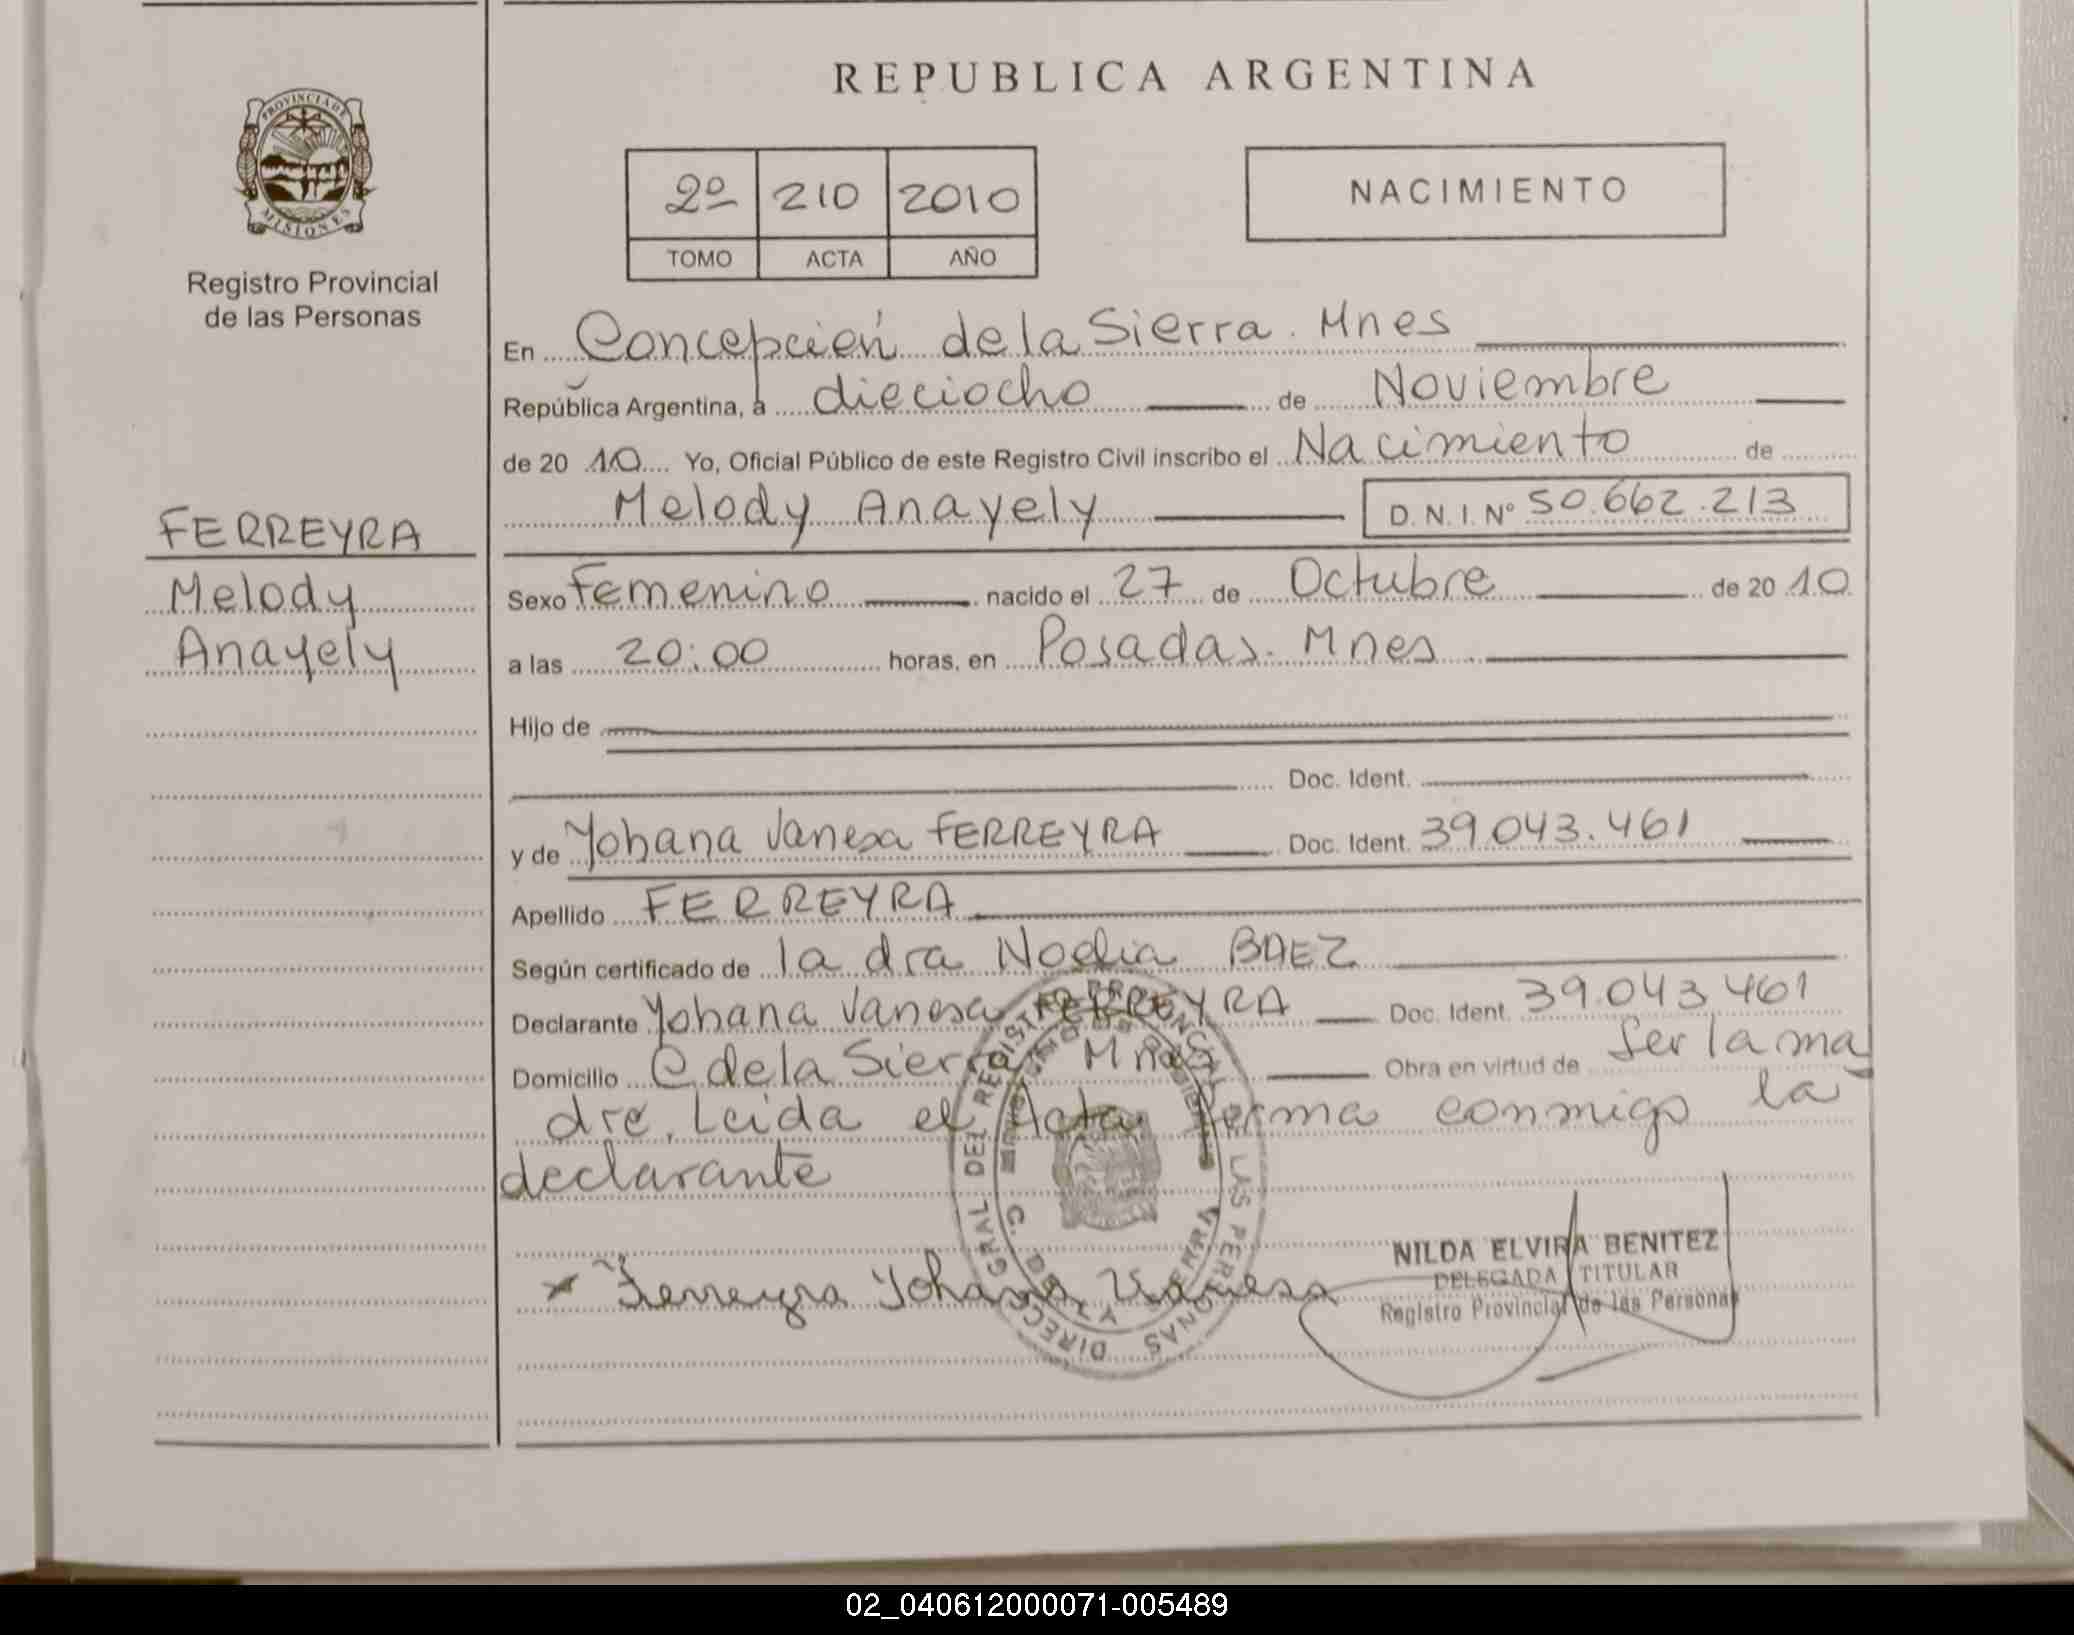 REPUBLICA ARGENTINA
PROVINCIA DE
MISIONES
Registro Provincial
de las Personas
2º 210 2010
TOMO ACTA AÑO
NACIMIENTO
En Concepción de la Sierra. Mnes
República Argentina, a dieciocho de Noviembre
de 20 10 Yo, Oficial Público de este Registro Civil inscribo el Nacimiento de
Melody Anayely D.N.I. Nº 50.662.213
FERREYRA
Melody
Anayely
Sexo Femenino nacido el 27 de Octubre de 20 10
a las 20:00 horas, en Posadas. Mnes
Hijo de
Doc. Ident.
y de Yohana Vanesa FERREYRA Doc. Ident. 39.043.461
Apellido FERREYRA
Según certificado de la dra Noelia BAEZ
Declarante Yohana Vanesa FERREYRA Doc. Ident. 39.043.461
Domicilio C. de la Sierra Mnes Obra en virtud de Ser la ma
dre. Leida el Acta, firma conmigo la
declarante
x Ferreyra Yohana Vanesa
NILDA ELVIRA BENITEZ
DELEGADA TITULAR
Registro Provincial de las Personas
DIRECC. GRAL DEL REGISTRO PROVINCIAL DE LAS PERSONAS
02_040612000071-005489